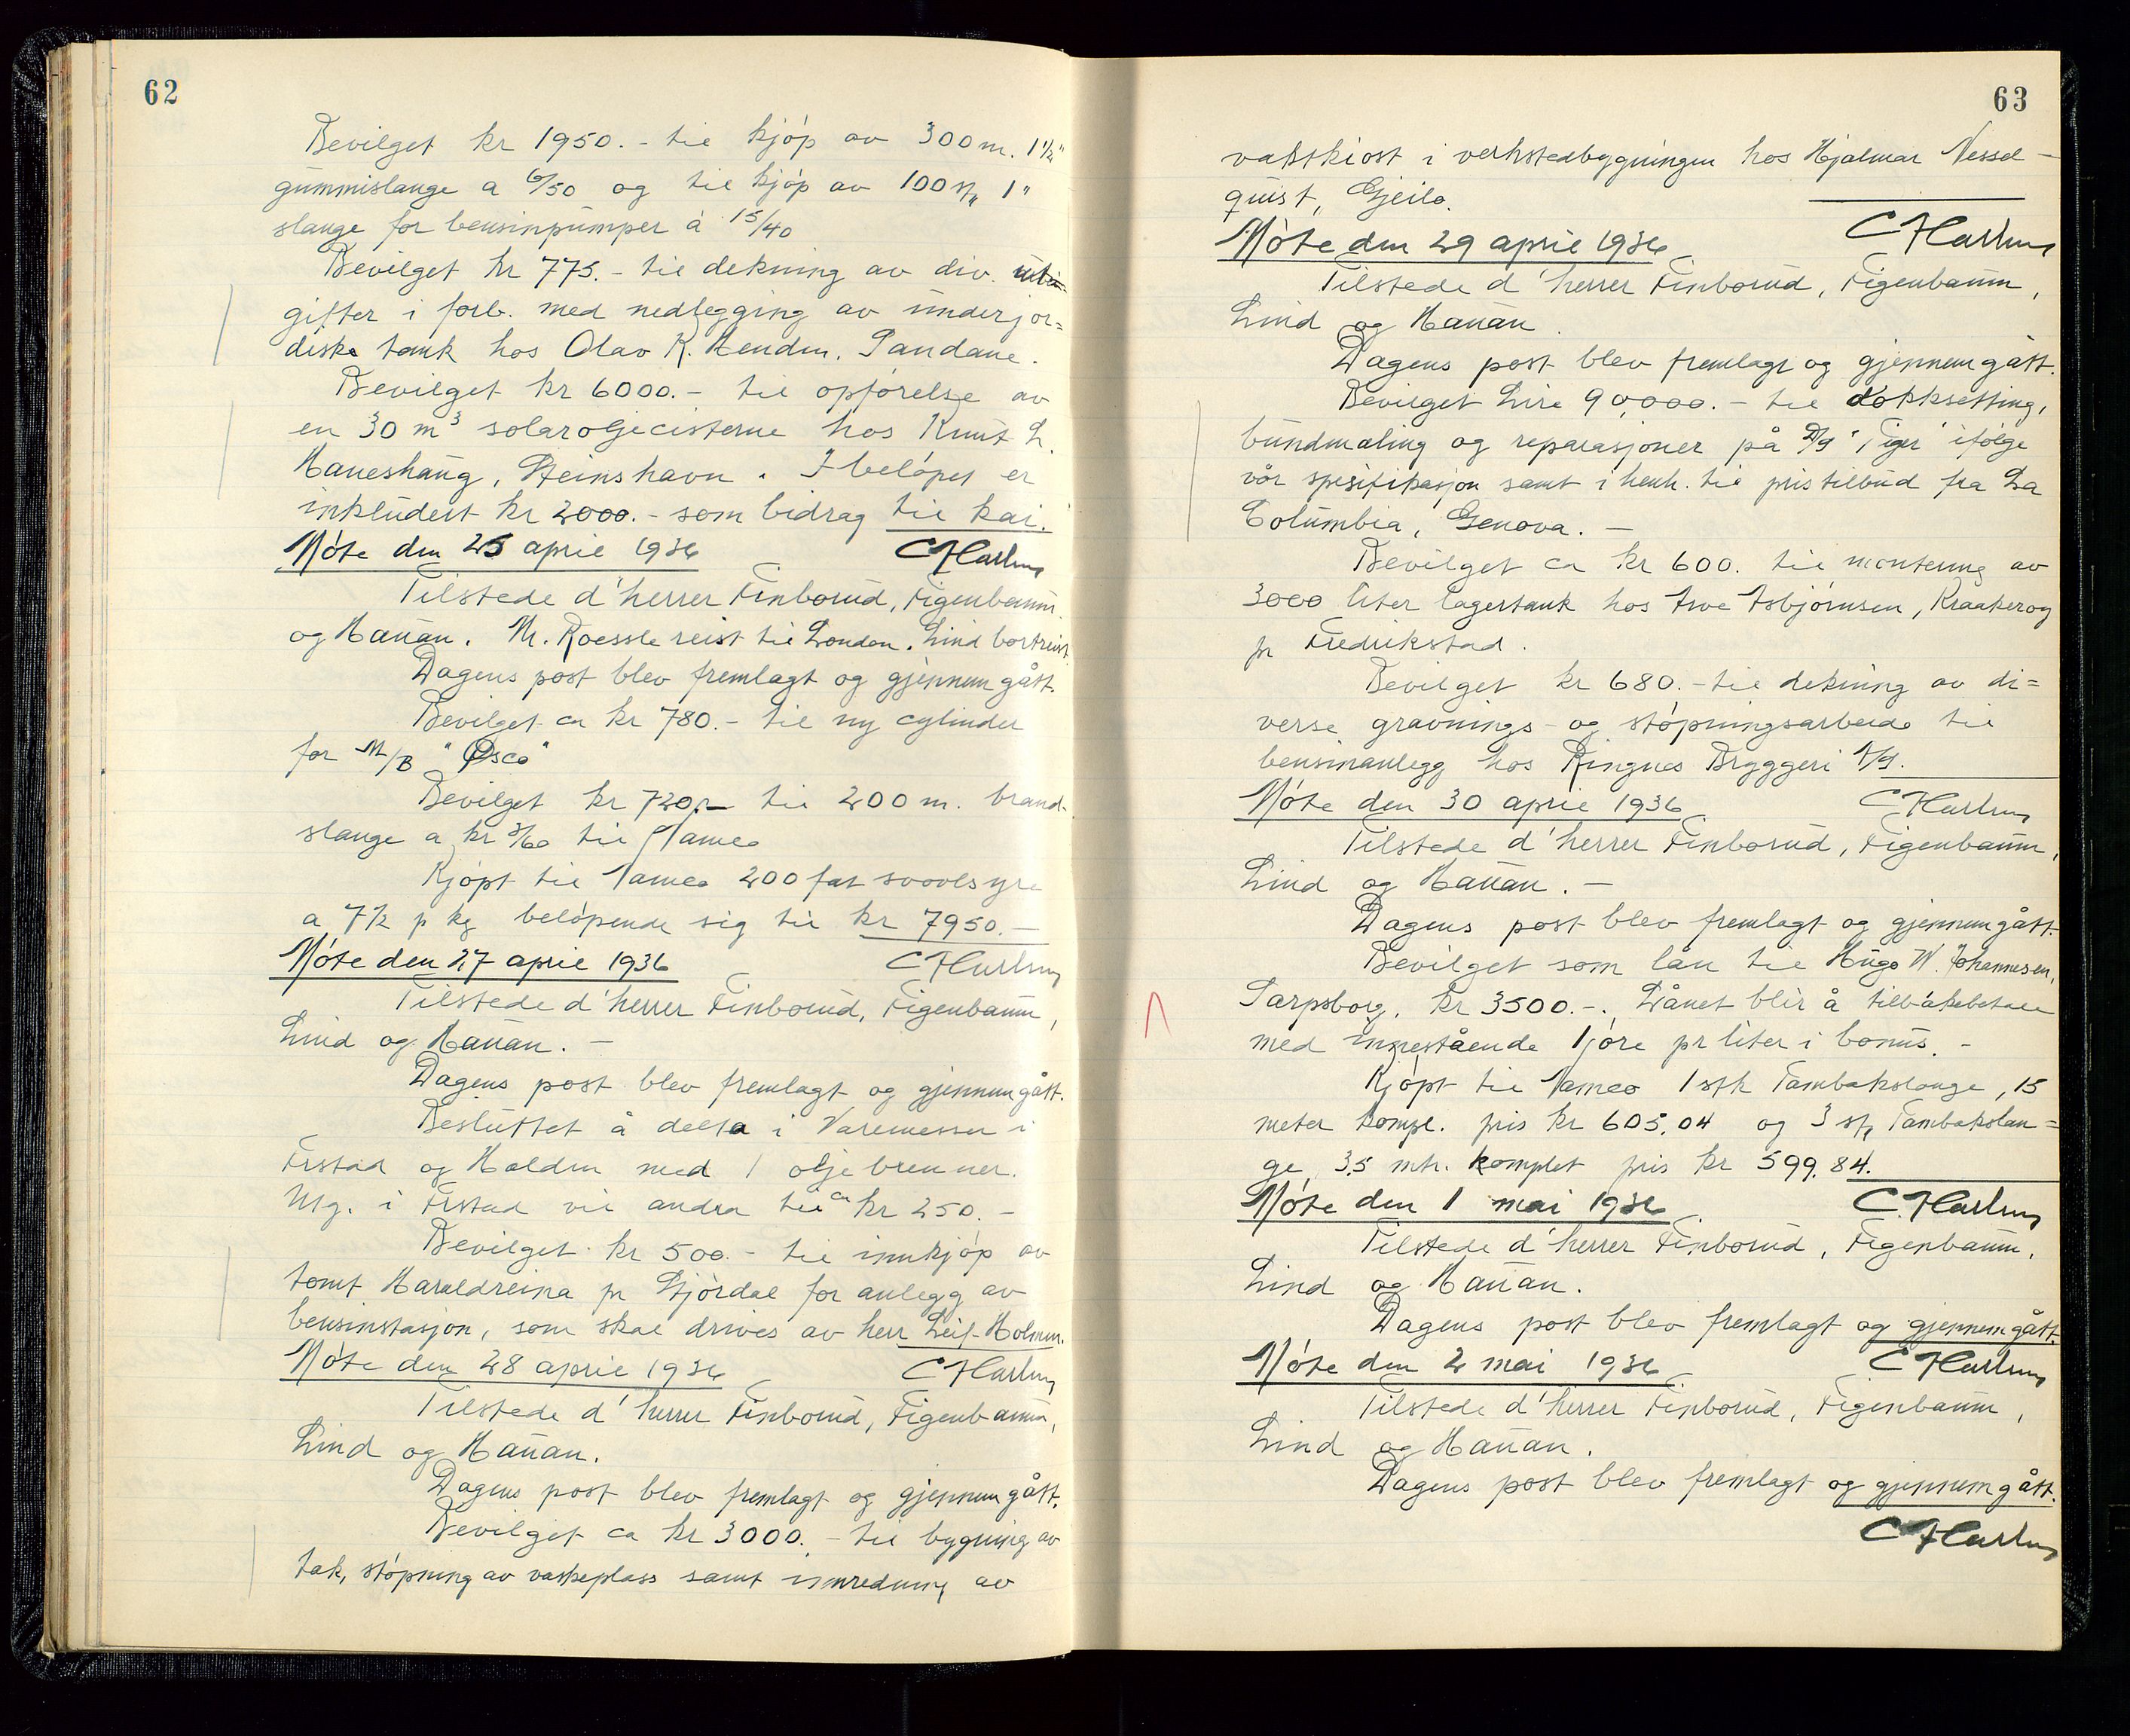 62
Bevilget kr 1950.- til kjøp av 300 m. 1½"
gummislange a 6/50 og til kjøp av 100 st, 1"
slange for bensinpumper à 15/40
Bevilget kr 775.- til dekning av div. ut-
gifter i forb. med nedlegging av underjor=
diske tank hos Olav K. Sandane.
Bevilget kr 6000.- til opførelse av
en 30 m³ solaroljecisterne hos Knut L.
Haneshaug, Steinshavn. I beløpet er
inkludert kr 2000.- som bidrag til kai.
Møte den 25 april 1936
Tilstede d'herrer Finborud, Figenbaum
og Hauan. Mr. Roessle reist til London. Lind bortreist
Dagens post blev fremlagt og gjennemgått.
Bevilget ca kr 780.- til ny cylinder
for M/B "Osco"
Bevilget kr 720,- til 200 m. brand-
slange a kr 3/60 til Vameo
Kjøpt til Vameo 200 fat svovlsyre
a 7½ p kg beløpende sig til kr 7950.-
Møte den 27 april 1936
Tilstede d'herrer Finborud, Figenbaum,
Lind og Hauan. -
Dagens post blev fremlagt og gjennemgått.
Besluttet å delta i Varemesser i
Frstad og Halden med 1 oljebrenner.
Utg. i Frstad vil andra til ca kr 250.-
Bevilget kr 500.- til innkjøp av
tomt Haraldreina pr Stjørdal for anlegg av
bensinstasjon, som skal drives av herr Leif Holmen.
Møte den 28 april 1936
Tilstede d'herrer Finborud, Figenbaum,
Lind og Hauan.
Dagens post blev fremlagt og gjennemgått.
Bevilget ca kr 3000.- til bygning av
tak, støpning av vaskeplass samt innredning av
63
vaktkiost i verkstedbygningen hos Hjalmar Nessel-
quist, Gjeilo.
Møte den 29 april 1936
Tilstede d'herrer Finborud, Figenbaum,
Lind og Hauan.
Dagens post blev fremlagt og gjennemgått.
Bevilget Lire 90,000.- til dokksetting,
bundmaling og reparasjoner på D/S "Tiger" ifølge
vår spesifikasjon samt i henh. til pristilbud fra La
Columbia, Genova. -
Bevilget ca kr 600. til montering av
3000 liter lagertank hos Arve Asbjørnsen, Kraakerøy
pr Fredrikstad.
Bevilget kr 680.- til dekning av di=
verse gravnings- og støpningsarbeide til
bensinanlegg hos Ringnes Bryggeri A/S.
Møte den 30 april 1936
Tilstede d'herrer Finborud, Figenbaum,
Lind og Hauan. -
Dagens post blev fremlagt og gjennemgått.
Bevilget som lån til Hugo W. Johannesen,
Sarpsborg, kr 3500.-. Lånet blir å tilbakebetale
med innestående 1 øre pr liter i bonus. -
Kjøpt til Vameo 1 stk Tambakslange, 15
meter kompl. pris kr 605,04 og 3 st, Tambakslan=
ge, 3,5 mtr. komplet pris kr 599,84.
Møte den 1 mai 1936
Tilstede d'herrer Finborud, Figenbaum,
Lind og Hauan.
Dagens post blev fremlagt og gjennemgått.
Møte den 2 mai 1936
Tilstede d'herrer Finborud, Figenbaum,
Lind og Hauan.
Dagens post blev fremlagt og gjennemgått.